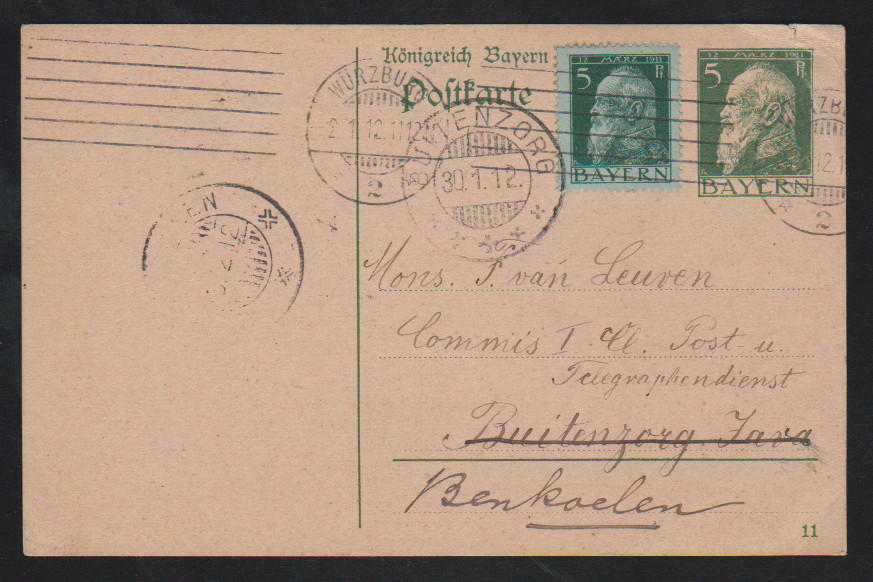 Königreich Bayern
Postkarte
12 MÆRZ 1911
5 Pf
BAYERN
12 MÆRZ 1911
5 Pf
BAYERN
WÜRZBU
2
BUITENZORG
30.1.12.
ZBU
2
EN
Mons. P. van Leuven
Commis I. Cl. Post u.
Telegraphendienst
Buitenzorg Java
Benkoelen
11